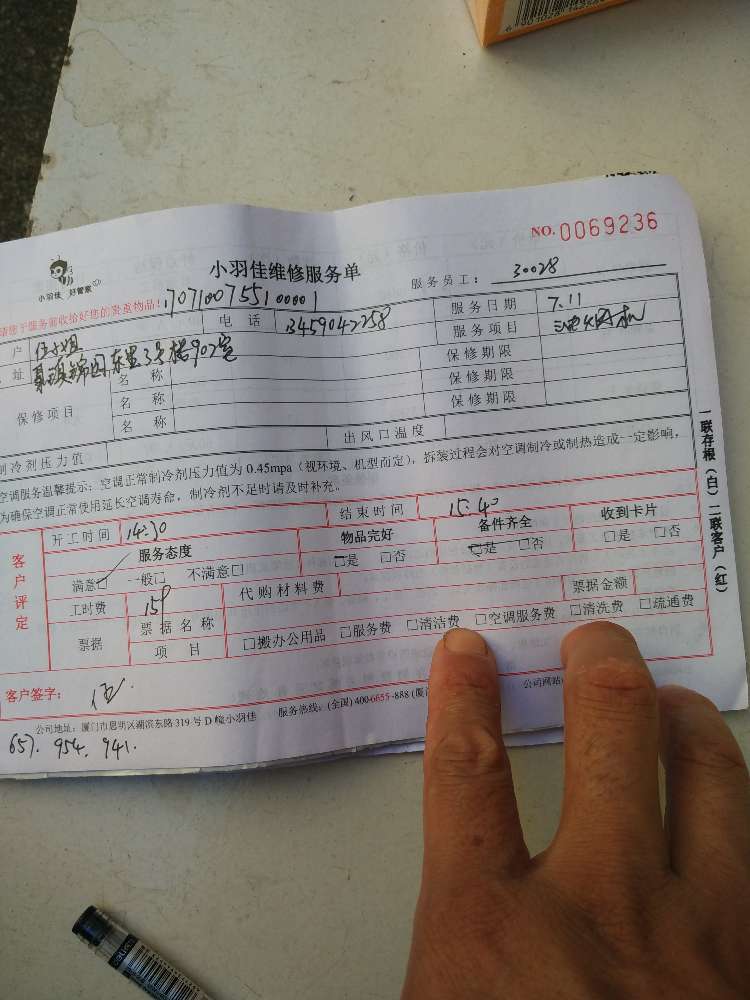 NO.0069236
小羽佳 好管家
小羽佳维修服务单
服务员工： 30028
请您于服务前收给好您的贵重物品！
1707100755100001
户 伍小姐 电话 13459042258 服务日期 7.11
址 东里3号楼902室 服务项目
保修项目 名称 保修期限
名称 保修期限
名称 保修期限
制冷剂压力值 出风口温度
空调服务温馨提示：空调正常制冷剂压力值为 0.45mpa（视环境、机型而定），拆装过程会对空调制冷或制热造成一定影响，
为确保空调正常使用延长空调寿命，制冷剂不足时请及时补充。
客户评定
开工时间 14:30 结束时间 15:40
服务态度 物品完好 备件齐全 收到卡片
满意□ 一般□ 不满意□ □是 □否 □是 □否 □是 □否
工时费 159 代购材料费 票据金额
票据 票据名称
项目 □搬办公用品 □服务费 □清洁费 □空调服务费 □清洗费 □疏通费
客户签字： 伍
公司地址：厦门市思明区湖滨东路 319 号 D 幢小羽佳 服务热线：(全国) 400-6655-888 (厦门 公司网站
657. 954. 941.
一联存根（白）二联客户（红）